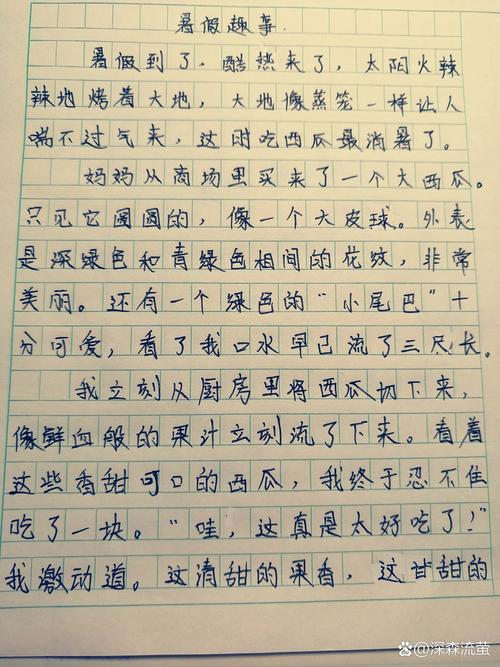 暑假趣事.
暑假到了，酷热来了，太阳火辣
辣地烤着大地，大地像蒸笼一样让人
喘不过气来，这时吃西瓜最消暑了。
妈妈从商场里买来了一个大西瓜。
只见它圆圆的，像一个大皮球。外表
是深绿色和青绿色相间的花纹，非常
美丽。还有一个绿色的“小尾巴”十
分可爱，看了我口水早已流了三尺长。
我立刻从厨房里将西瓜切下来，
像鲜血般的果汁立刻流了下来。看着
这些香甜可口的西瓜，我终于忍不住
吃了一块。“哇，这真是太好吃了！”
我激动道。这清甜的果香，这甘甜的
@深森流萤